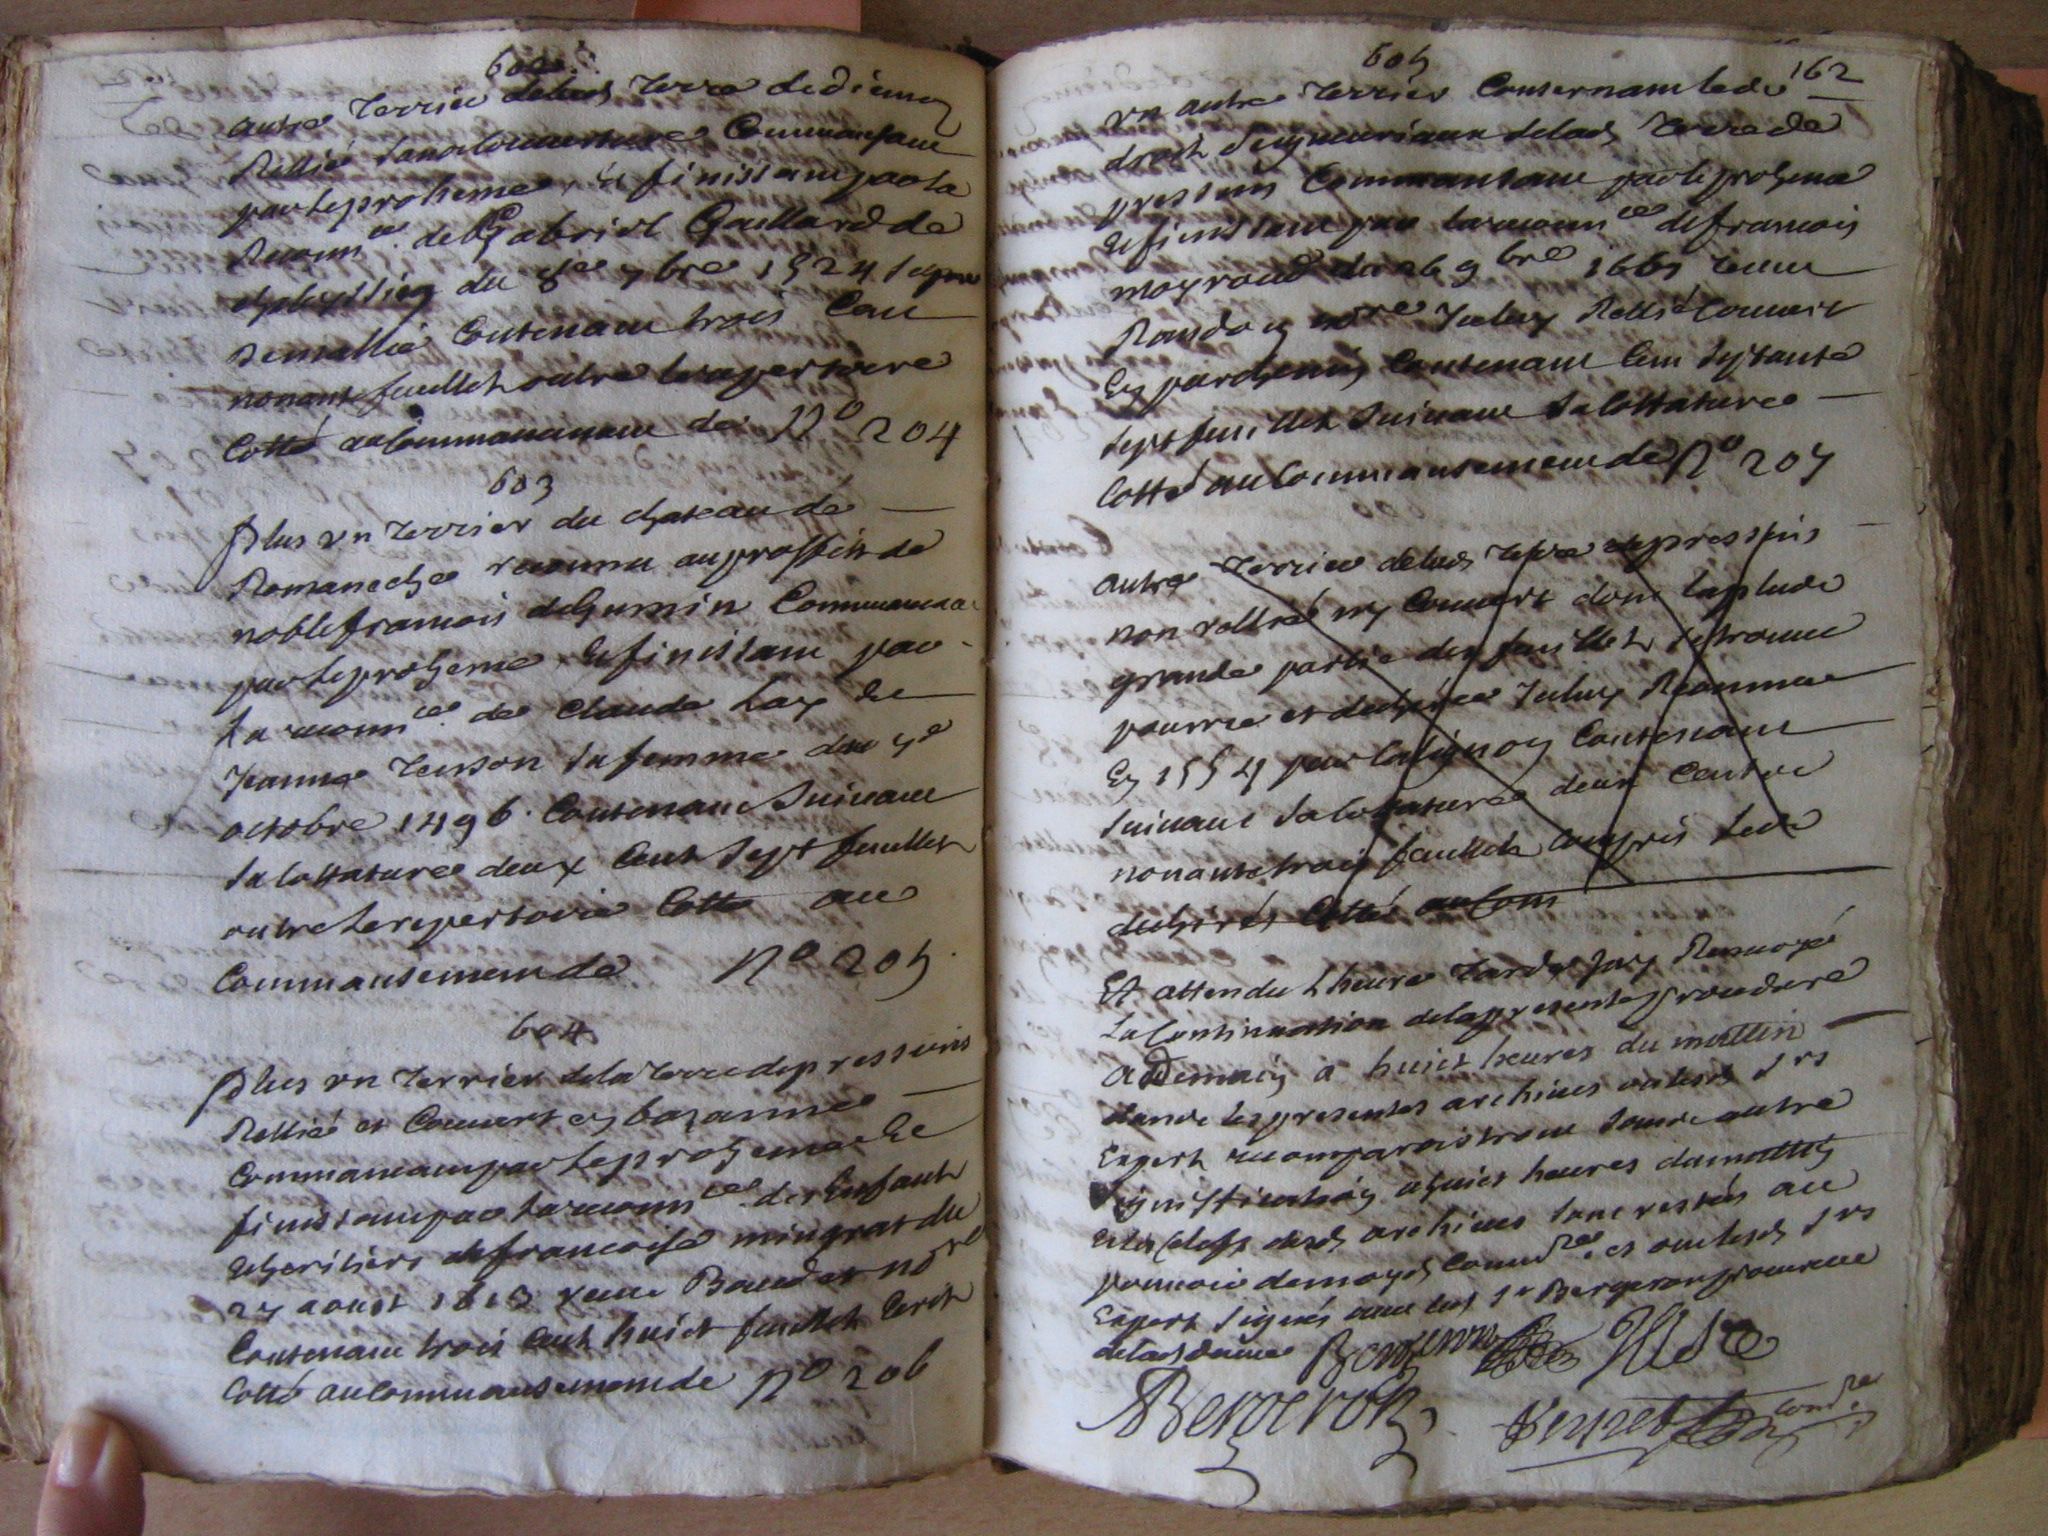 602
autre terrier de lad terre de disimoz
Rellié sans couverture Commansant
par le proheme, et finissant par la
Reconn.ce de Gabriel Gaillard de
du 8e 7bre 1524 signé
Demallié Contenant trois Cent
nonante feuillets outre le repertoire
Cotté au Commancement de N° 204
603
Plus vn terrier du chateau de
Romaneche reconnu au proffit de
noble francois de Gumin Commancant
par le proheme, et finissant par
la reconn.ce de Claude Lay et
Jeanne Tersson sa femme du 7e
octobre 1496. Contenant Suivant
sa Cottature deux Cent Sept feuillets
outre le repertoire Cotté au
Commansement de N° 205.
604
Plus vn terrier de la terre de pressins
Rellié et Couvert en bazanne
Commancant par le proheme et
finissant par la reconn.ce des Enfants
et heritiers de francoise mingrat du
27 aoust 1613 receu Baudet no.re
Contenant trois Cent huict feuillets Ecrits
Cotté au Commansement de N° 206
605
162
vn autre terrier Consernant les
droits Seigneuriaux de lad terre de
pressins Commansant par le proheme
et finissant par la reconn.ce de francois
moyroud du 26 9bre 1661 receu
no.re Rellié Couvert
En parchemin Contenant Cent Septante
Sept feuillets Suivant Sa Cottature
Cotté au Commansement de N° 207
autre terrier de lad terre de pressins
non rellié ny Couvert dont la plus
grande partie des feuillets se trouve
pourrie et dechirée Reconnu
En 1554 par Contenant
Suivant Sa Cottature deux Cent
nonante trois feuillets Compris les
dechirés Cotté au Com
Et attendu l'heure tarde Jay Renvoyé
La Continuation de la presente procedure
a demain a huict heures du mattin
dans les presentes archives ou lesd Srs
Experts recomparoistront Sans autre
Signiffication a huict heures du mattin
Et les Clefs desd archives Sont restés au
pouvoir de moyd Comm.re et ont lesd Srs
Experts Signés avec led Sr Bergeron procureur
de lad dame
Bergeron
Com.re